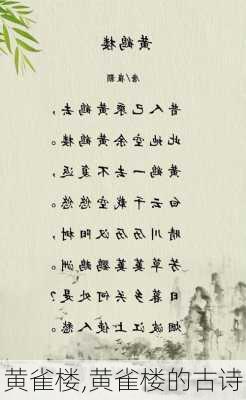 黄鹤楼
唐/崔颢
昔人已乘黄鹤去，
此地空余黄鹤楼。
黄鹤一去不复返，
白云千载空悠悠。
晴川历历汉阳树，
芳草萋萋鹦鹉洲。
日暮乡关何处是？
烟波江上使人愁。
黄雀楼,黄雀楼的古诗